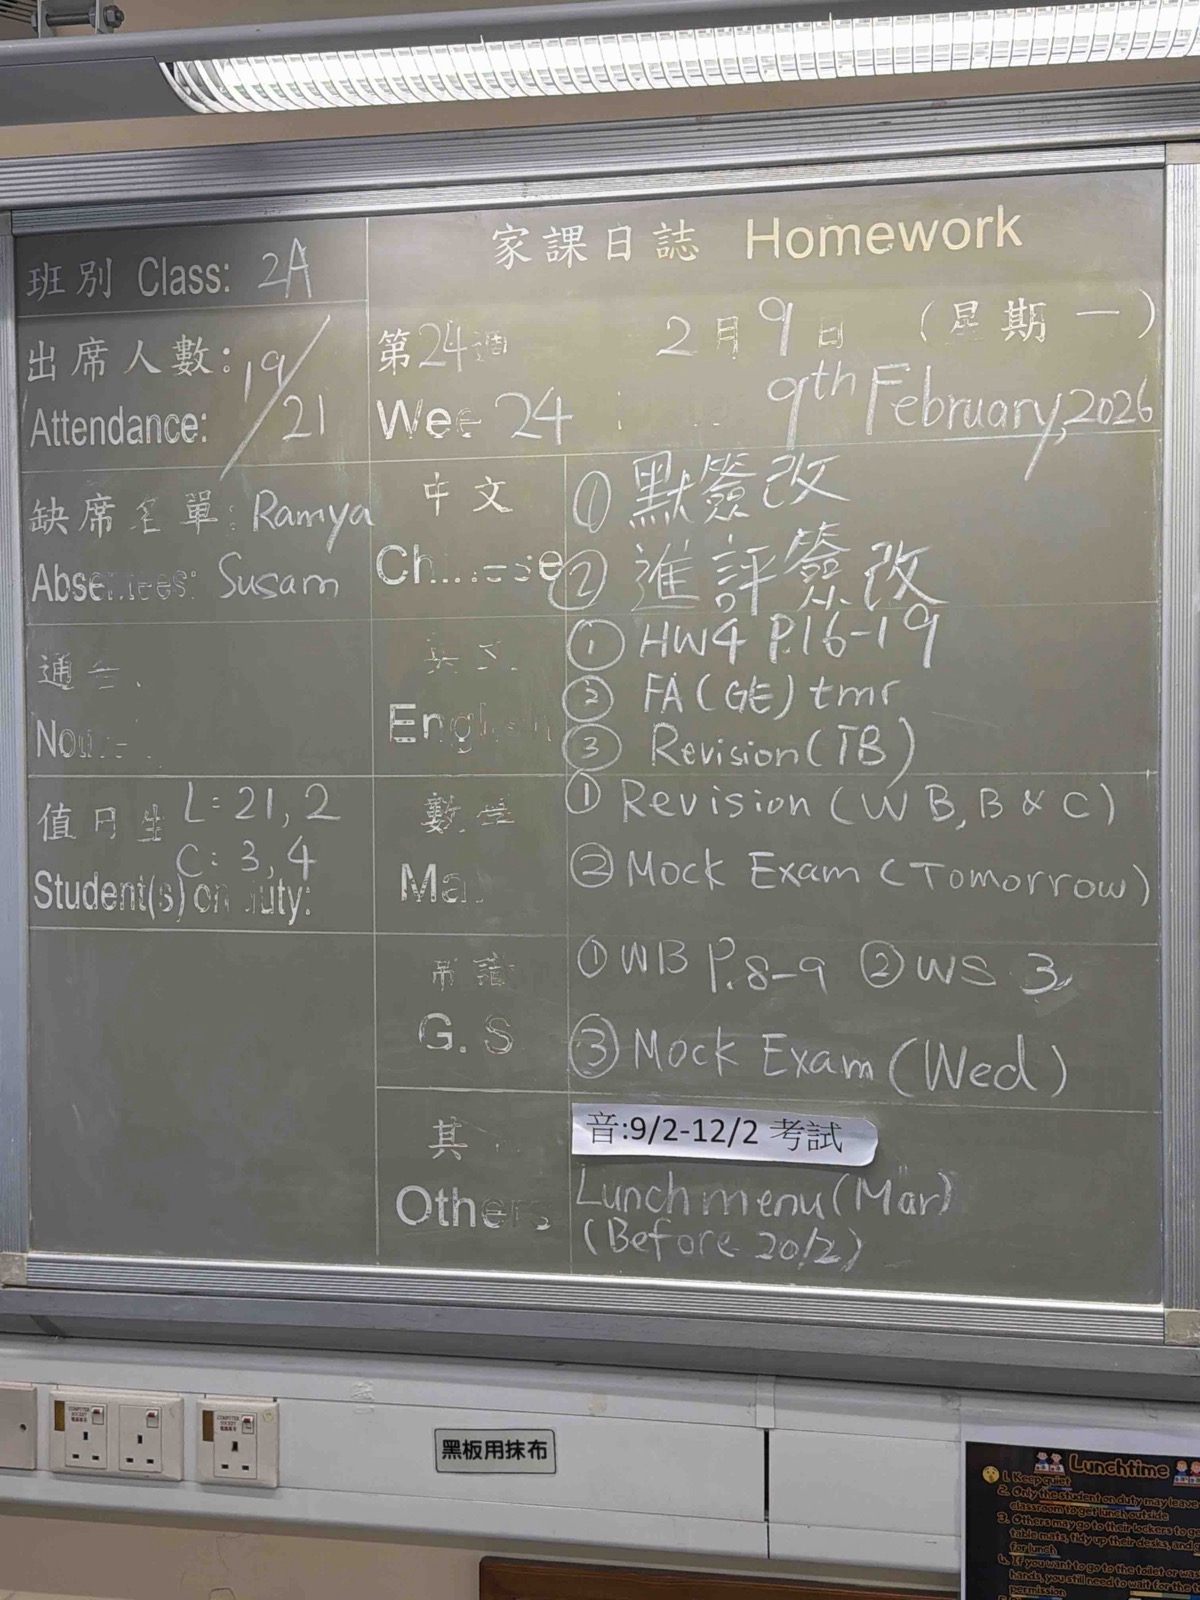 家課日誌 Homework
班別 Class: 2A
出席人數: 19/21
Attendance:
第24週 2月9日 (星期一)
Wee 24 9th February, 2026
缺席名單: Ramya
Absentees: Susam
中文
Chinese
① 默簽改
② 進評簽改
通告
英文
English
① HW4 P.16-19
② FA (GE) tmr
③ Revision (TB)
值日生 L: 21, 2
C: 3, 4
Student(s) on duty:
數學
Ma
① Revision (WB, B & C)
② Mock Exam (Tomorrow)
常識
G. S
① WB P.8-9 ② WS 3
③ Mock Exam (Wed)
其
Others
音:9/2-12/2 考試
Lunch menu (Mar)
(Before 20/2)
COMPUTER SOCKET
COMPUTER SOCKET
黑板用抹布
Lunchtime
1. Keep quiet
2. Only the student on duty may leave
classroom to get lunch outside
3. Others may go to their lockers to
table mats, tidy up their desks, and
for lunch
4. If you want to go to the toilet or
hands, you still need to wait for the
permission